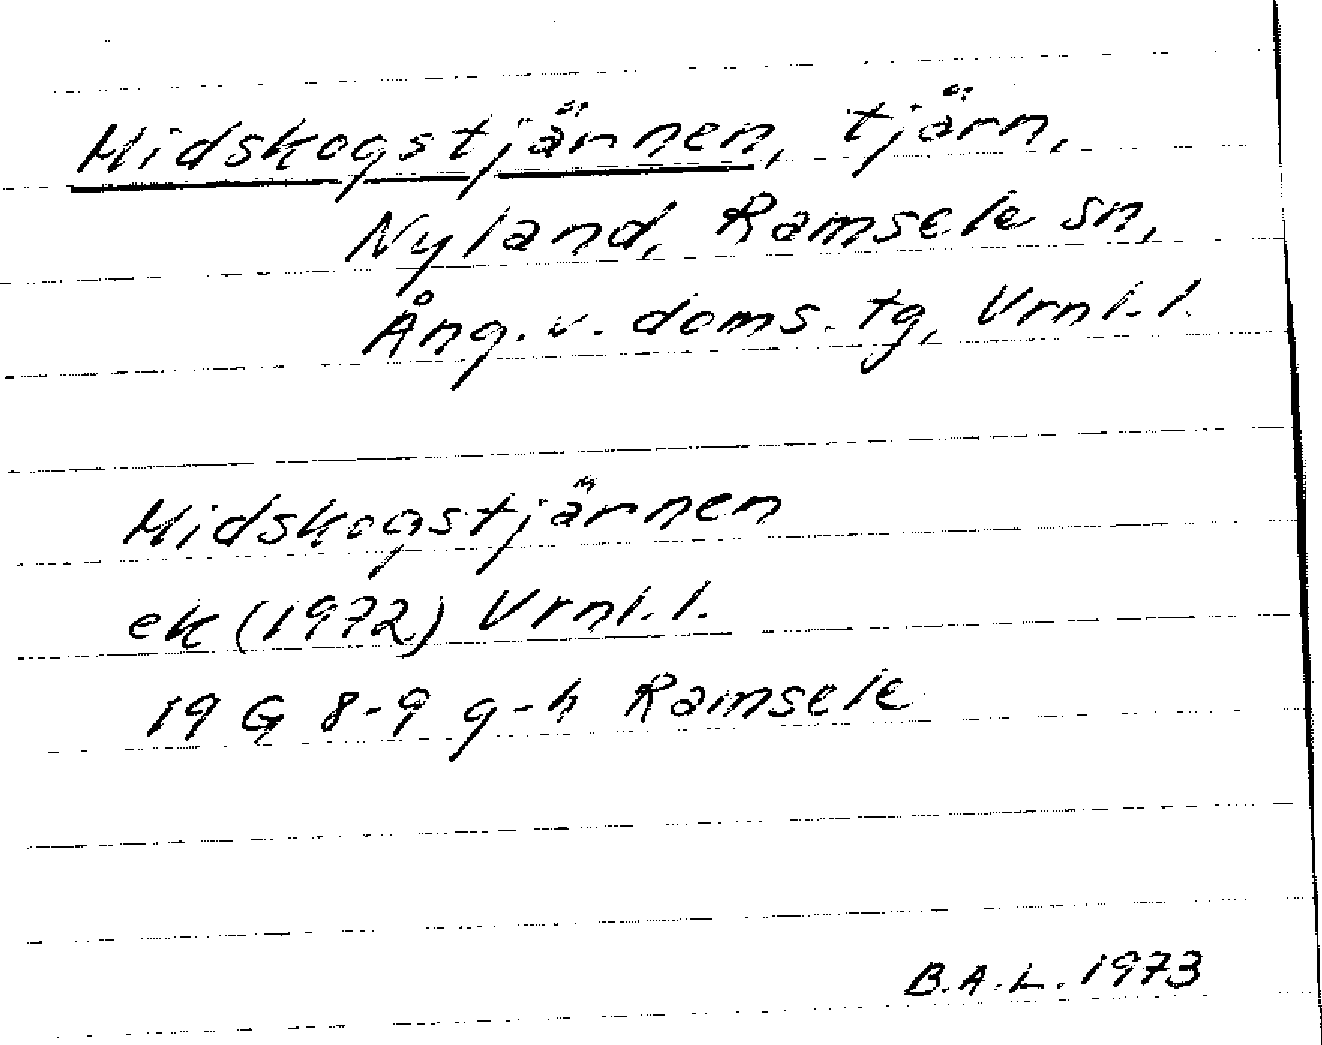 Midskogstjärnen, tjärn,
Nyland, Ramsele sn,
Ång. v. doms. tg, Vrnl. l.
Midskogstjärnen
ek (1972) Vrnl. l.
19 G 8-9 g-h Ramsele
B.A.L. 1973